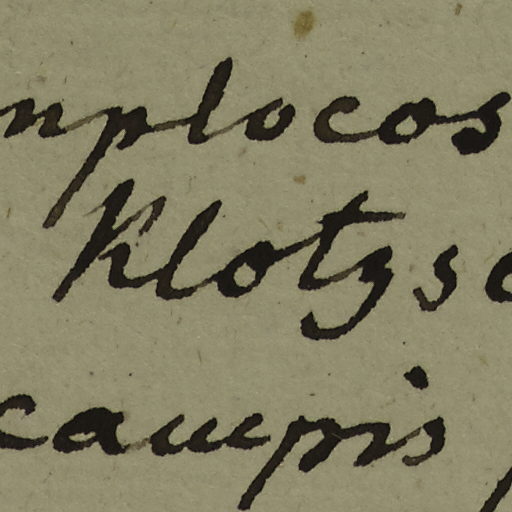 mplocos
Klotzsc
campis